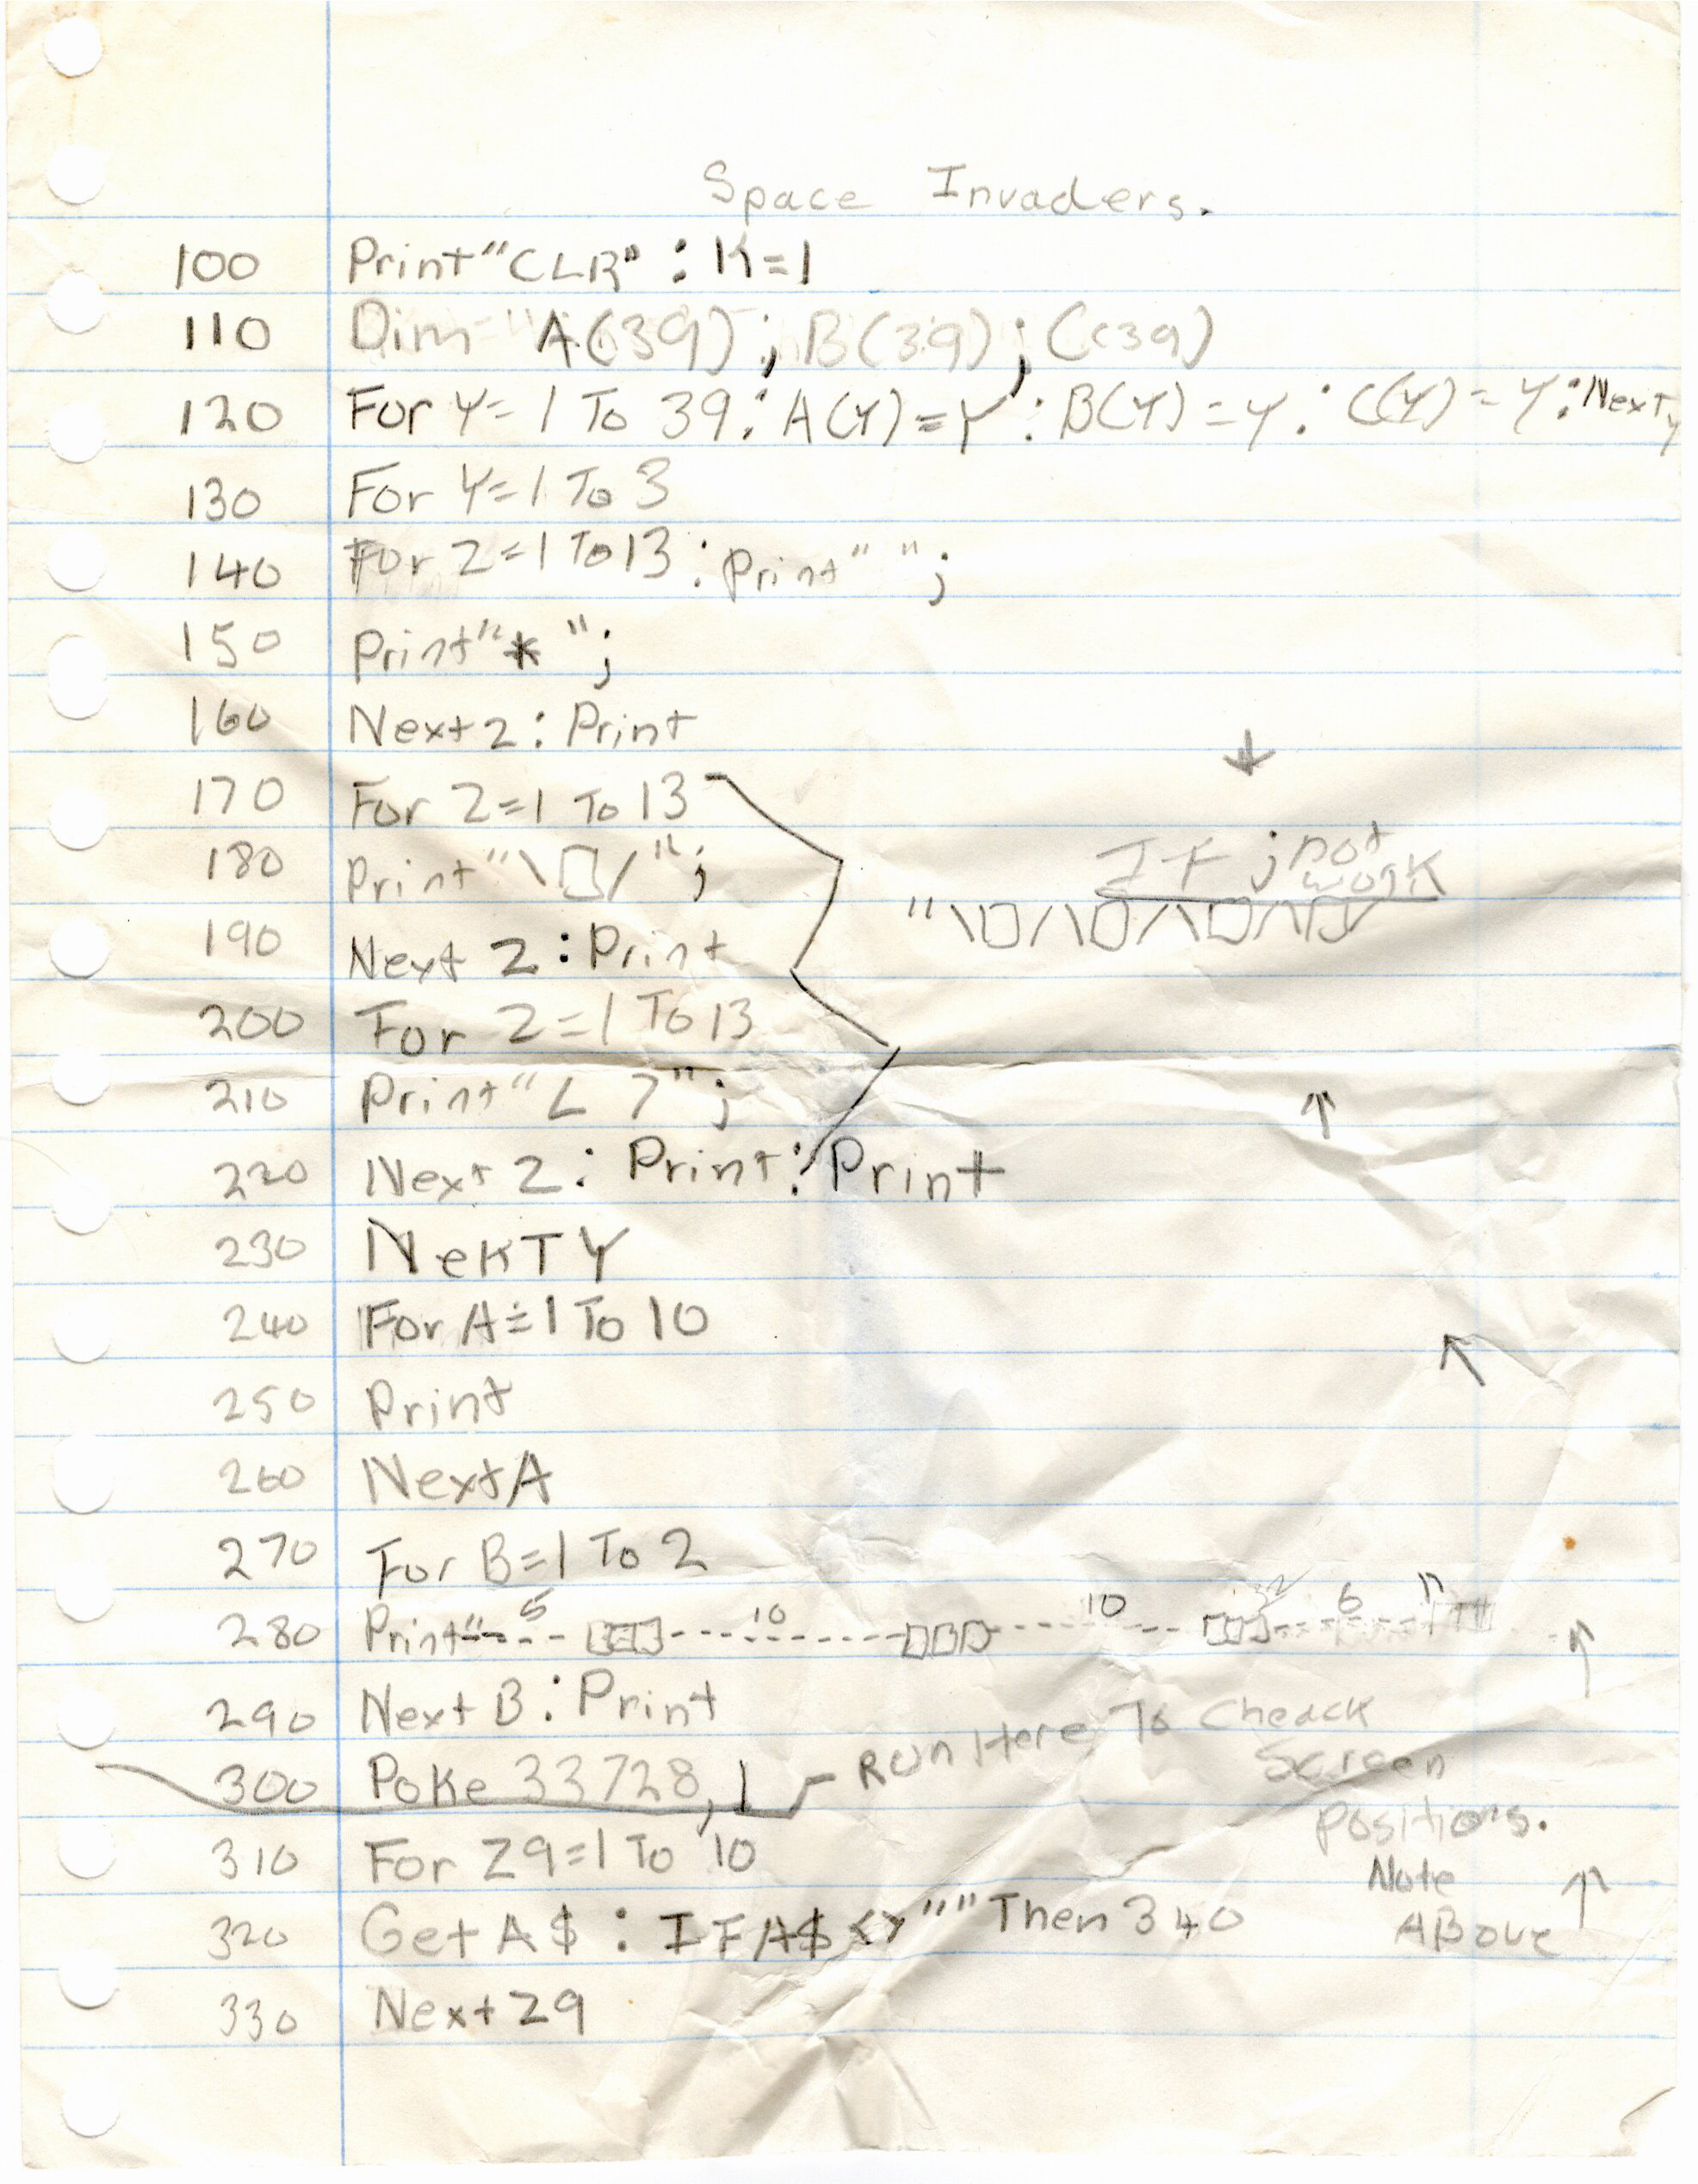 Space Invaders.
100 Print"CLR" : K=1
110 Dim A(39); B(39); C(39)
120 For Y=1 To 39: A(Y)=Y: B(Y)=Y: C(Y)=Y: Next Y
130 For Y=1 To 3
140 For Z=1 To 13: Print" ";
150 Print"* ";
160 Next Z: Print
170 For Z=1 To 13
180 Print"\□/";
↓
If ; not work
"\□/\□/\□/\□/
190 Next Z: Print
200 For Z=1 To 13
210 Print"L 7";
↑
220 Next Z: Print: Print
230 NeKT Y
240 For A=1 To 10
↑
250 Print
260 Next A
270 For B=1 To 2
5 10 10 6
280 Print"-----□□□----------□□□----------□□□------"
290 Next B: Print
300 Poke 33728,1
Run Here To Cheack
Screen
Positions.
Note
ABove ↑
310 For Z9=1 To 10
320 Get A$ : IF A$<>"" Then 340
330 Next Z9